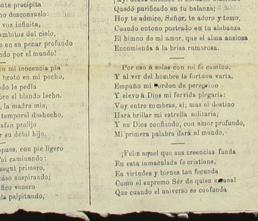 no desconsuelo:
vos infinita,
ámbitos del cielo,
en un pesar profundo
por el mundo!
mi inocencia pía
brotó en mi pecho,
le pedía
el blando lecho.
la madre mía,
temporal deshecho,
prolijo
su detal hijo,
con pié ligero
caminando:
primero,
suspirando;
venero
palpitando,
Quedó purificado en tu balanza;
Hoy te admiro, Señor, te adoro y temo,
Cuando entono postrado en tu alabanza
El himno de mi amor, que el alma ansiosa
Encomienda á la brisa rumorosa.
Por eso á solas con mi fe camino,
Y al ver del hombre la fortuna varia,
Empuño mi bordon de peregrino
Y elevo á Dios mi férvida plegaria:
Voy entre sombras, sí; mas el destino
Hará brillar mi estrella solitaria;
Y en Dios confiando, con amor profundo,
Mi primera palabra daré al mundo.
¡Feliz aquel que sus creencias funda
En esta inmaculada fe cristiana,
En virtudes y bienes tan fecunda
Como el supremo Sér de quien emana!
Que cuando el universo se confunda